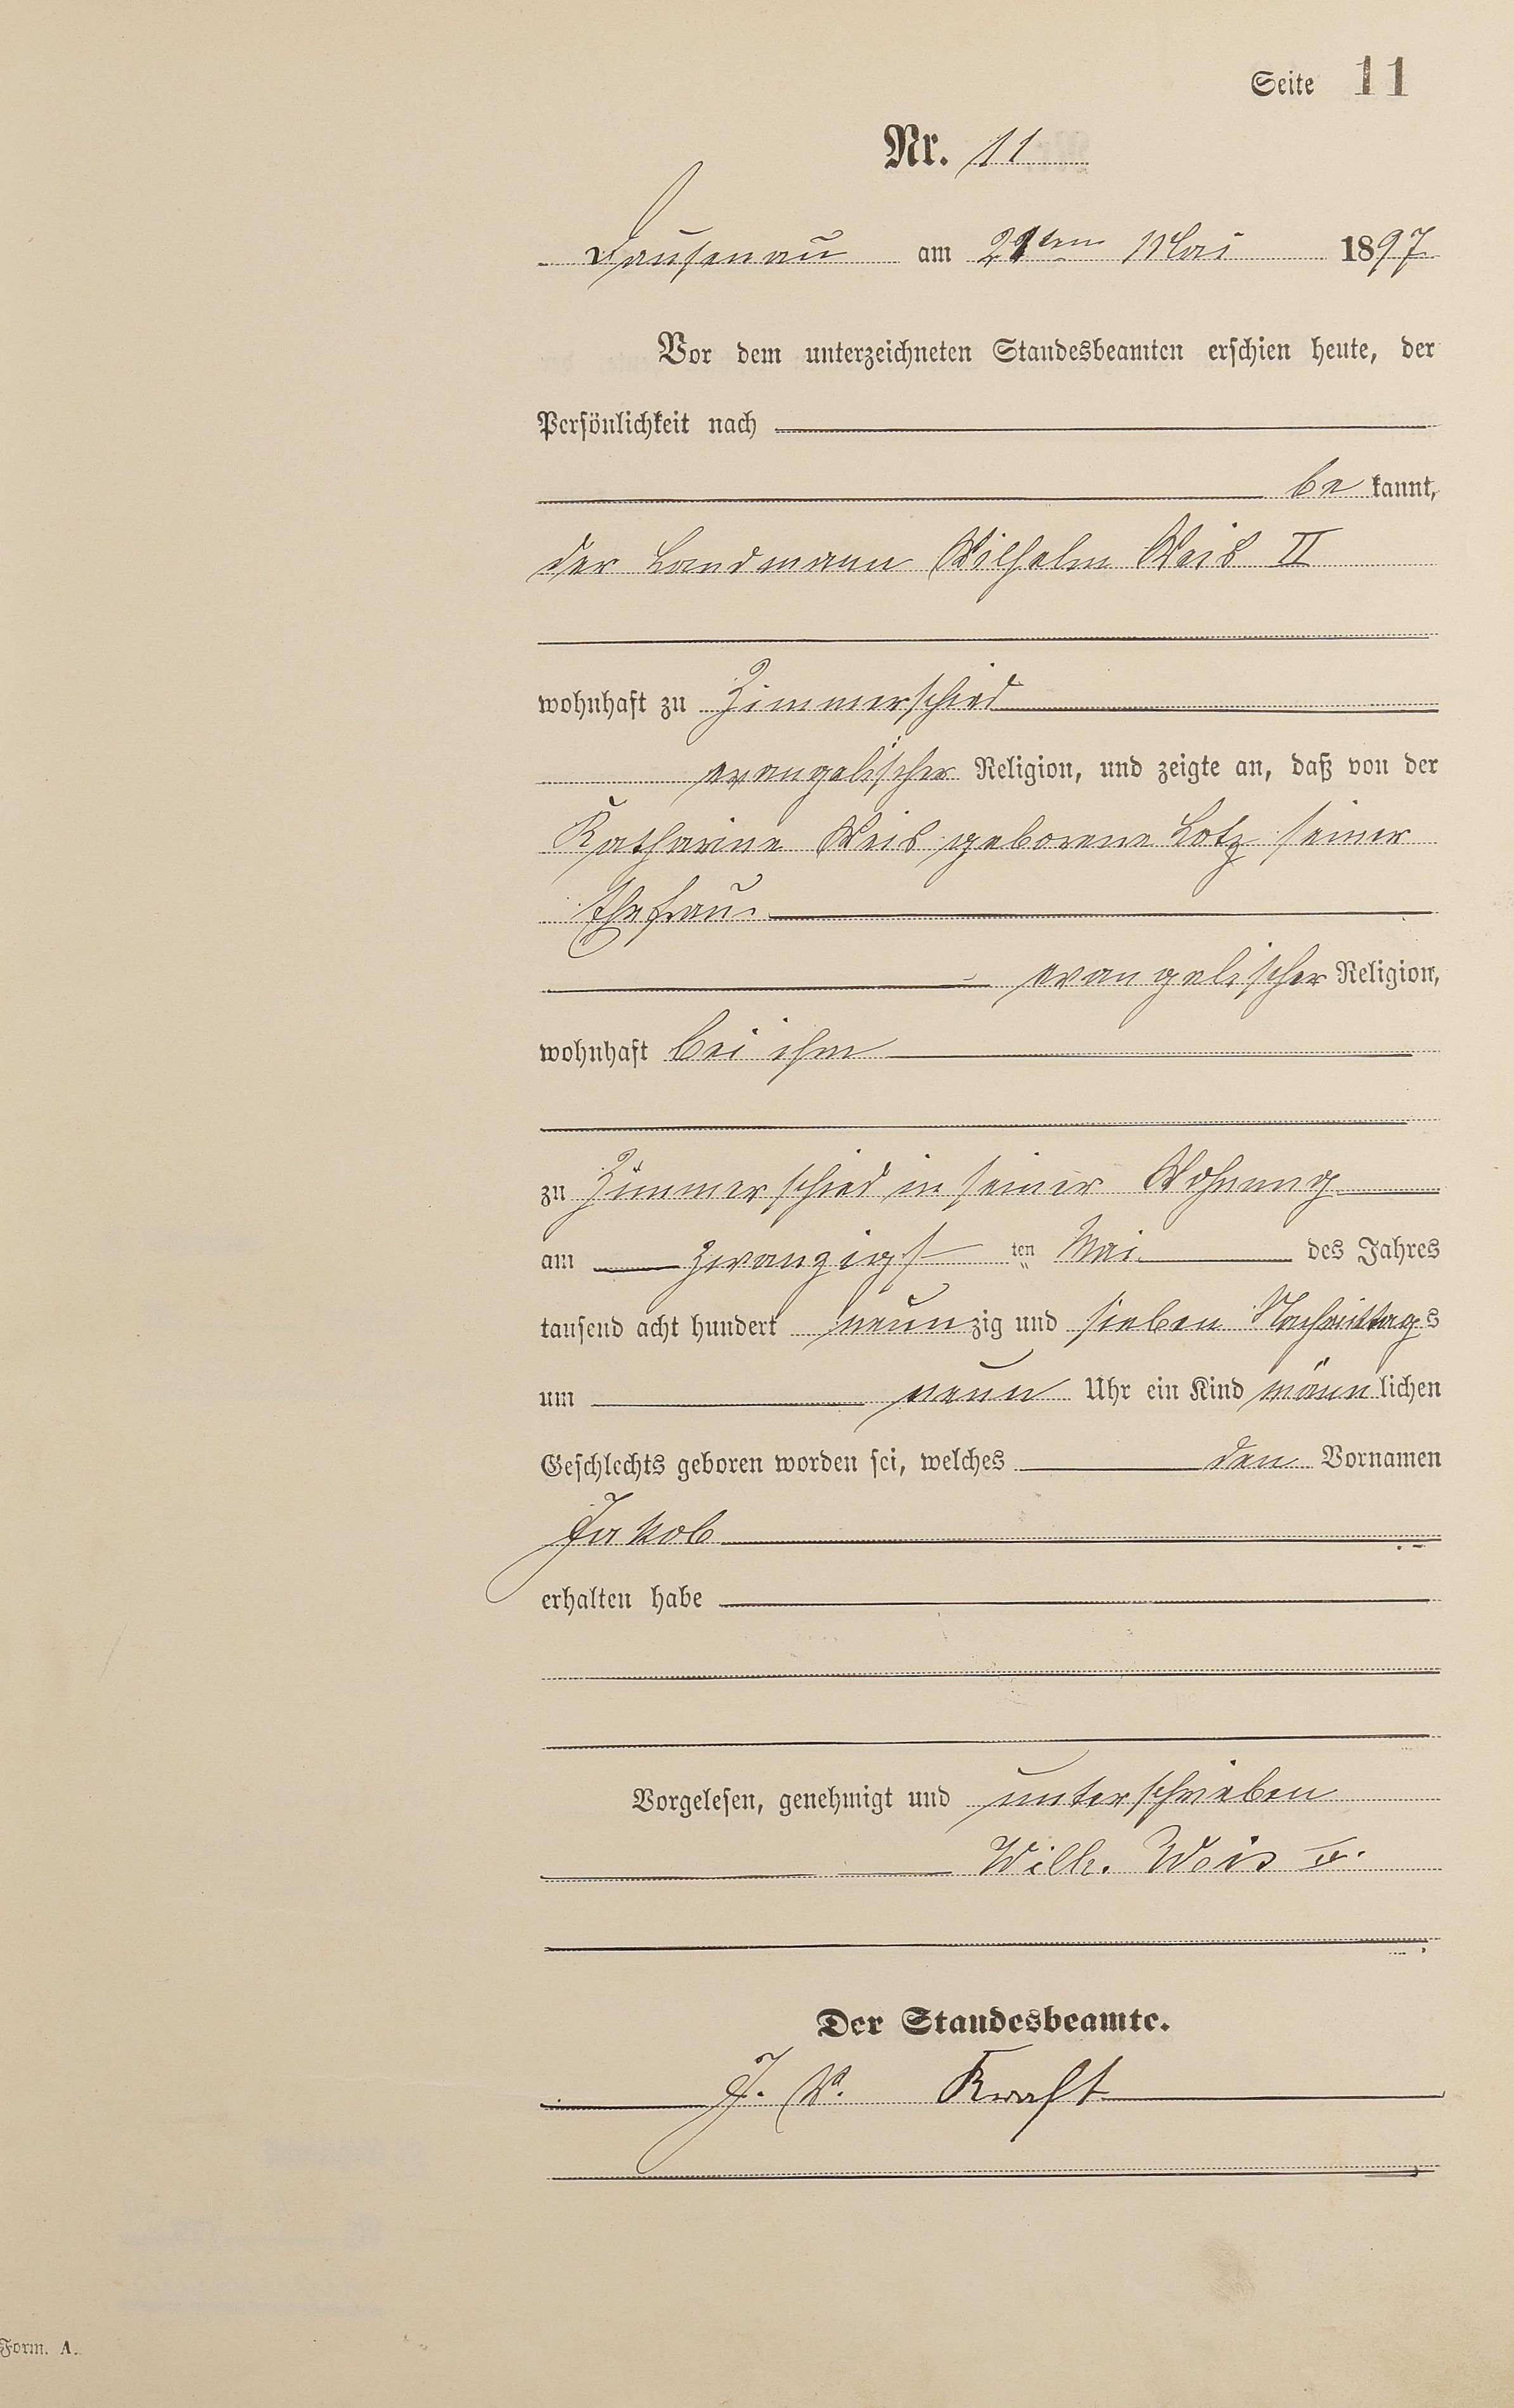 Seite 11
Nr. 11
Dausenau am 21ten Mai 1897
Vor dem unterzeichneten Standesbeamten erschien heute, der
Persönlichkeit nach
be kannt,
der Landmann Wilhelm Weis II
wohnhaft zu Zimmerschied
evangelischer Religion, und zeigte an, daß von der
Katharine Weis geborene Lotz seiner
Ehefrau
evangelischer Religion,
wohnhaft bei ihm
zu Zimmerschied in seiner Wohnung
am zwanzigsten Mai des Jahres
tausend acht hundert neunzig und sieben Nachmittags
um neun Uhr ein Kind männlichen
Geschlechts geboren worden sei, welches den Vornamen
Jakob
erhalten habe
Vorgelesen, genehmigt und unterschrieben
Wilh. Weis II.
Der Standesbeamte.
J. V. Kraft
Form. A.